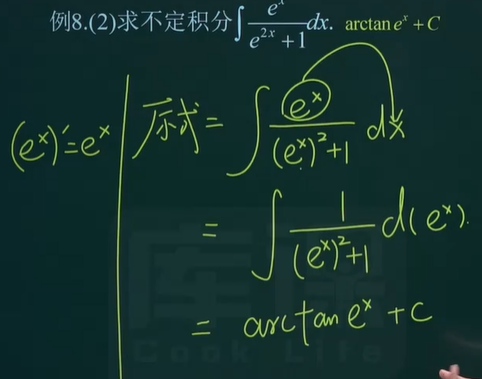 例8.(2)求不定积分∫ eˣ/(e²ˣ+1) dx. arctan eˣ + C
(eˣ)′=eˣ 原式= ∫ eˣ/((eˣ)²+1) dx
= ∫ 1/((eˣ)²+1) d(eˣ).
= arctan eˣ + C
Cook Life